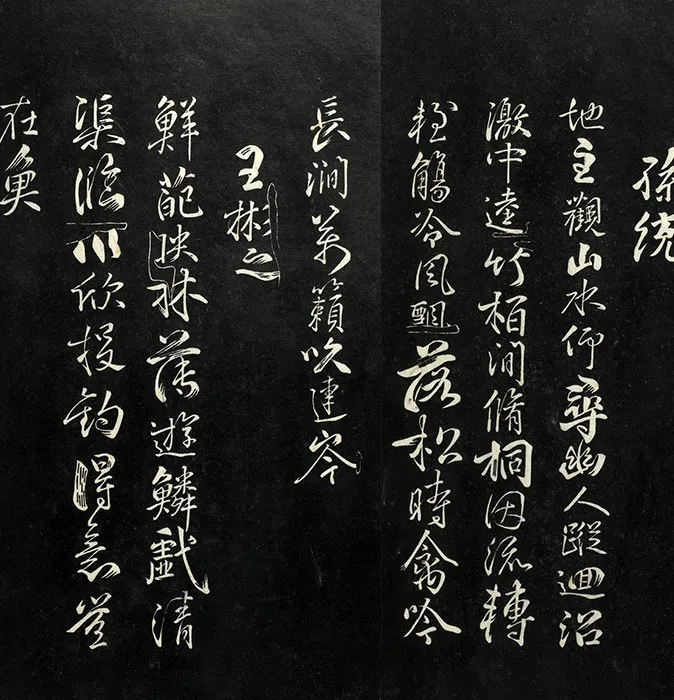 孫統
地主觀山水仰尋幽人蹤迴沼
激中逵竹柏澗脩桐因流轉
輕觴冷風飄落松時禽吟
長澗萬籟吹連岑
王彬之
鮮葩映林薄遊鱗戲清
渠臨川欣投釣得意豈
在魚